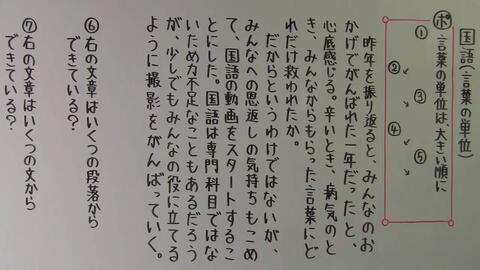 国語(言葉の単位)
ポ 言葉の単位は、大きい順に
①
②
③
④
⑤
昨年を振り返ると、みんなのお
かげでがんばれた一年だった、と
心底感じる。辛いとき、病気のと
き、みんなからもらった言葉にど
れだけ救われたか。
だからというわけではないが、
みんなへの恩返しの気持ちもこめ
て、国語の動画をスタートするこ
とにした。国語は専門科目ではな
いため力不足なこともあるだろう
が、少しでもみんなの役に立てる
ように撮影をがんばっていく。
⑥右の文章はいくつの段落から
できている?
⑦右の文章はいくつの文から
できている?